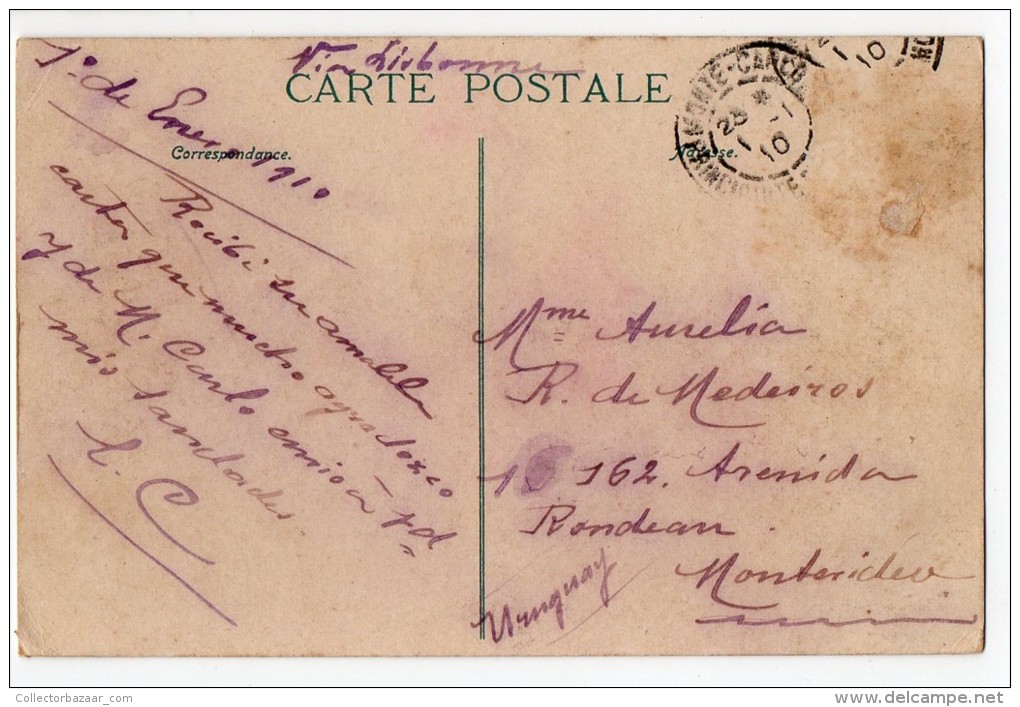 Via Lisbonne
CARTE POSTALE
Correspondance.
Adresse.
1º de Enero 1910
Recibi su amable
carta que mucho agradosco
y de M. Carlo envio a Vd
mis saludos
L. C
MONTE-CARLO
23 *
1 -1
10
Mme Aurelia
R. de Medeiros
162. Avenida
Rondeau.
Montevideo
Uruguay
CollectorBazaar_com
delcampe.net